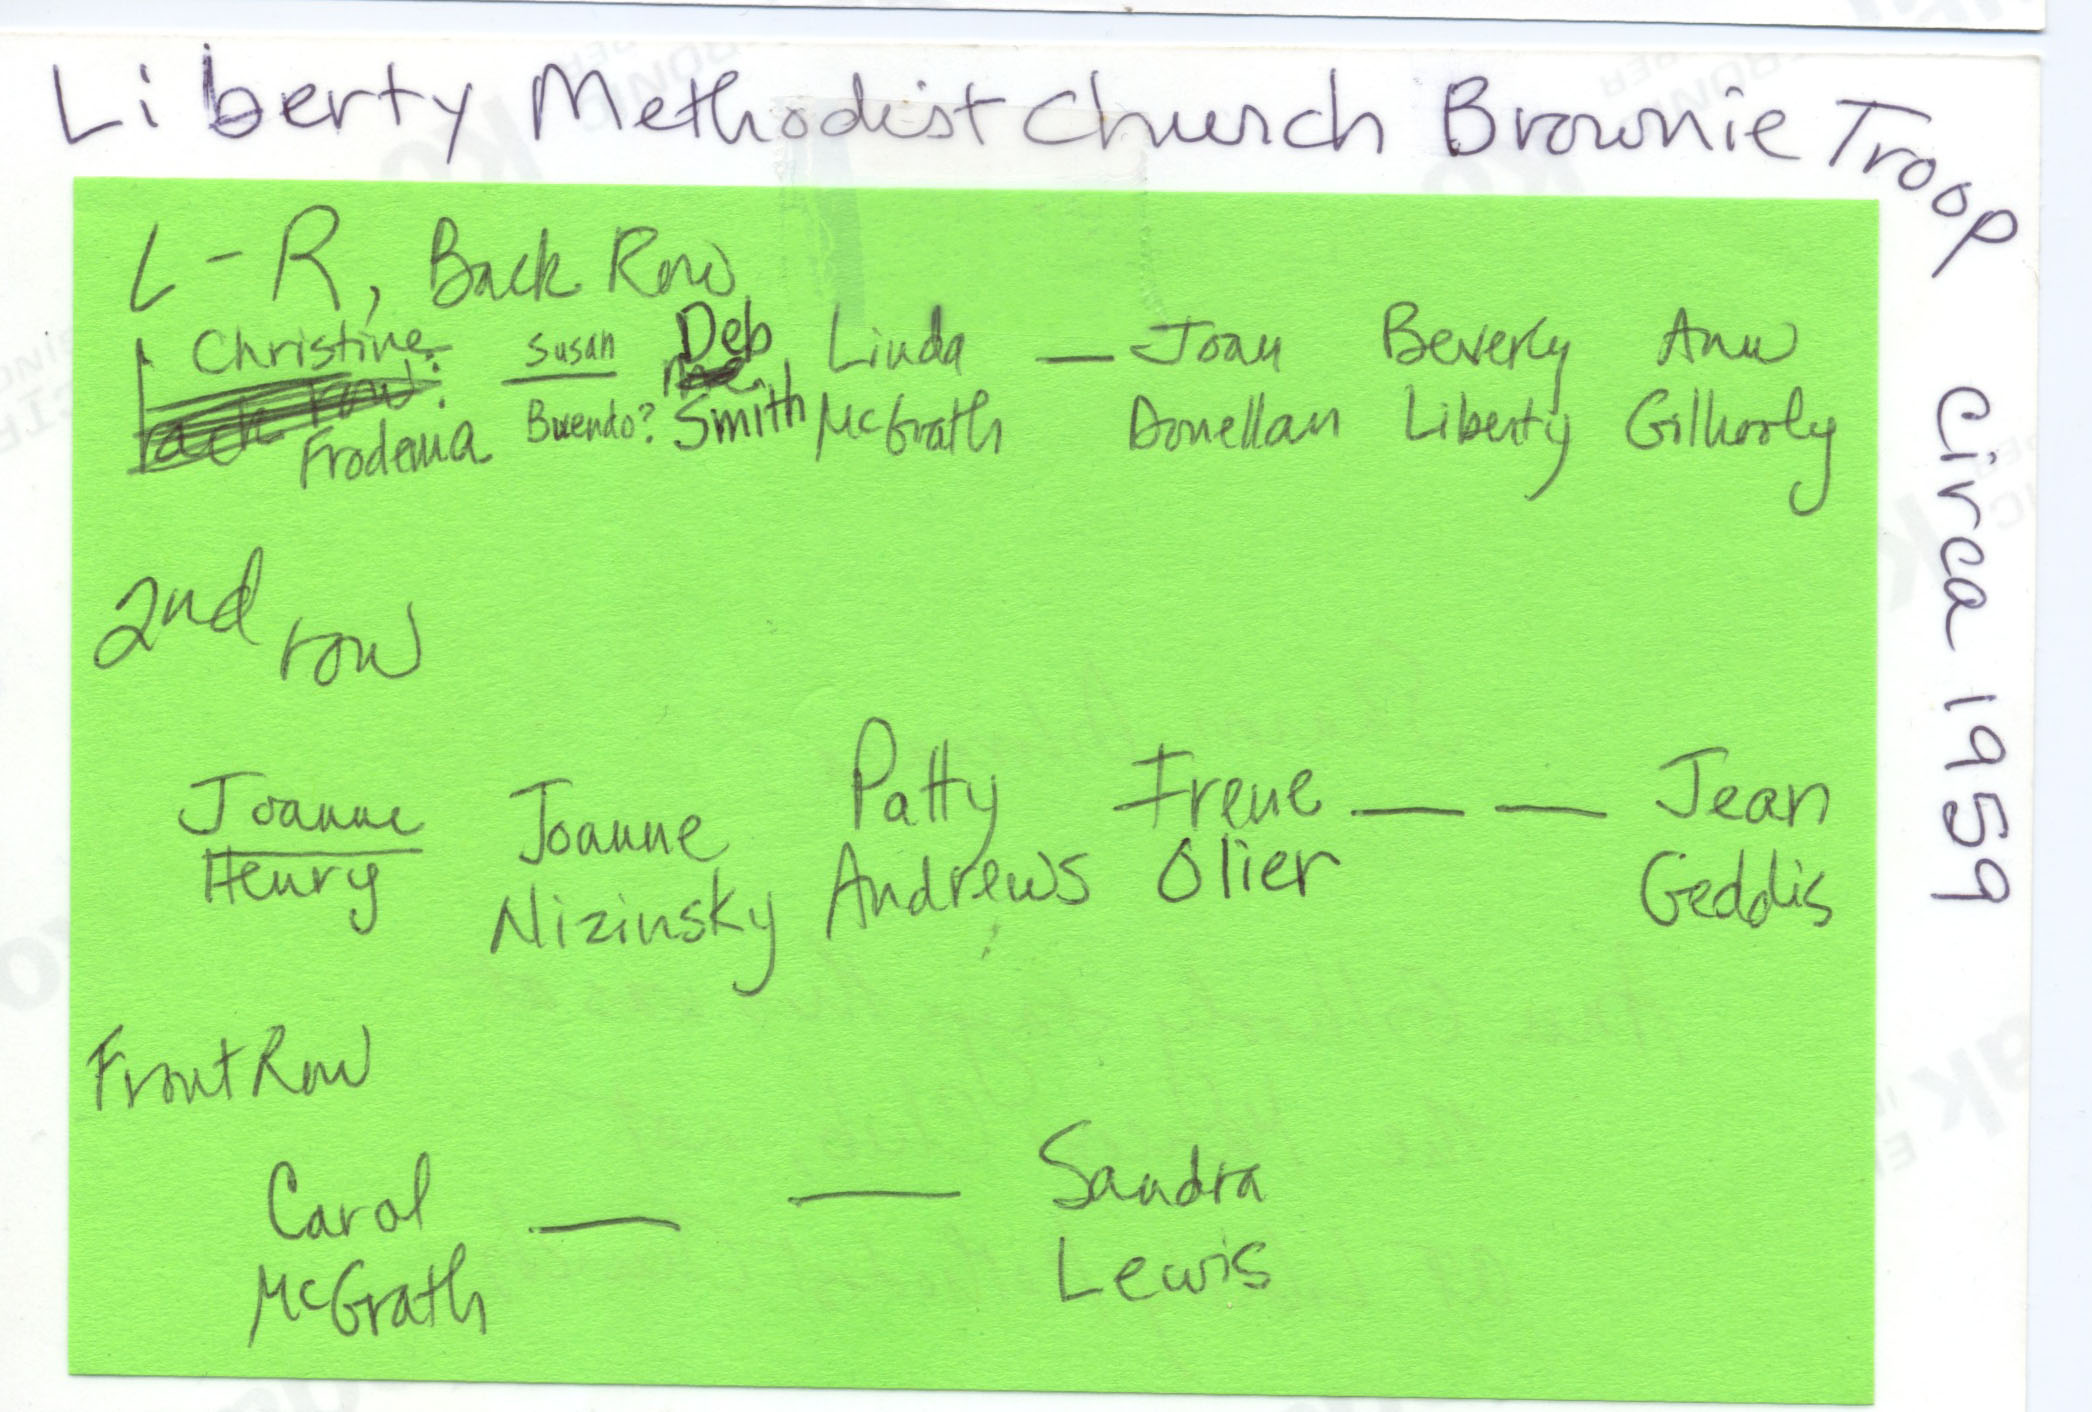 Liberty Methodist Church Brownie Troop
Circa 1959
L-R, Back Row
Christine Susan Deb Linda — Joan Beverly Ann
Frodema Buendo? Smith McGrath Donellan Liberty Gilhooly
2nd row
Joanne Joanne Patty Irene — — Jean
Henry Nizinsky Andrews Olier Geddis
Front Row
Carol — — Sandra
McGrath Lewis